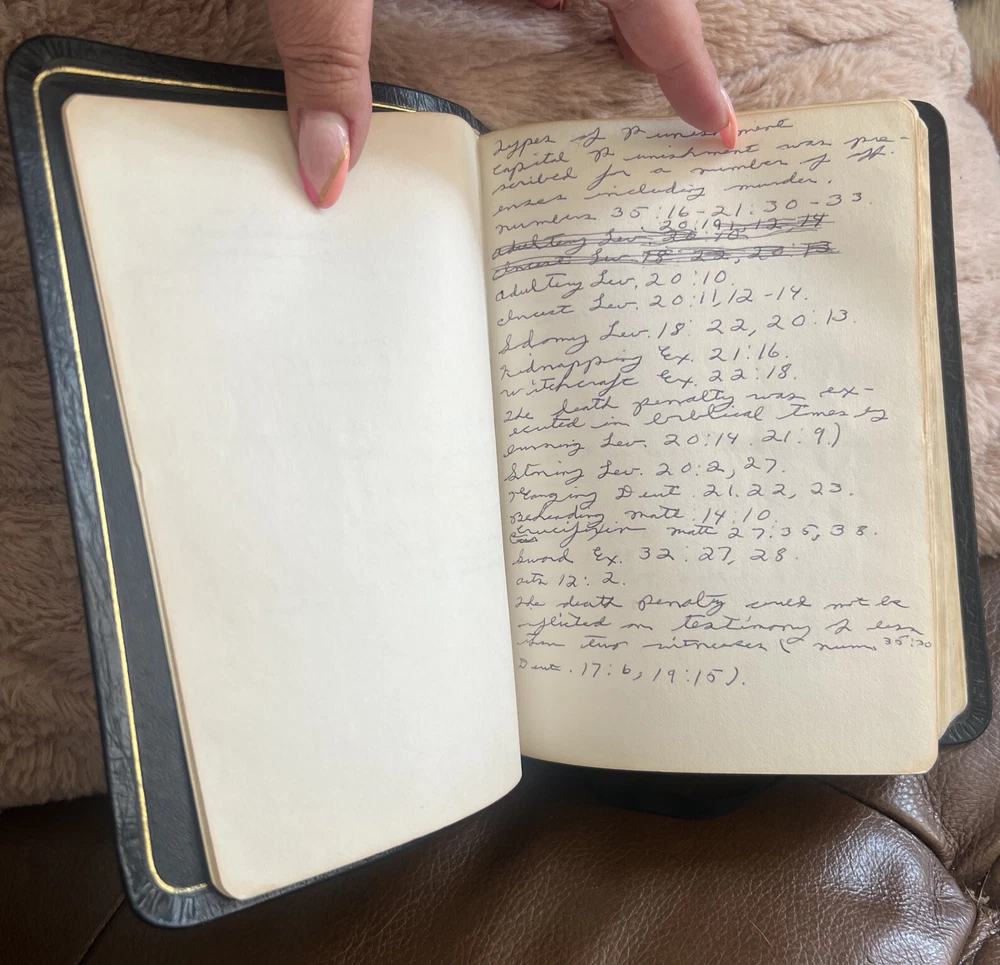 Types of Punishment
Capital Punishment was pre-
scribed for a number of off-
enses including murder.
numbers 35:16-21:30-33.
20:19, 12, 14
Adultery Lev. 20:10
Incest Lev. 18:22, 20:13
Adultery Lev. 20:10.
Incest Lev. 20:11,12-14.
Sodomy Lev. 18:22, 20:13.
Kidnapping Ex. 21:16.
Witchcraft Ex. 22:18.
The death penalty was ex-
ecuted in biblical times by
burning Lev. 20:14. 21:9.)
Stoning Lev. 20:2, 27.
Hanging Deut. 21.22, 23.
Beheading matt. 14:10
Crucifixion matt 27:35, 38.
Sword Ex. 32:27, 28.
acts 12:2.
The death penalty could not be
inflicted on testimony of less
than two witnesses (num. 35:30
Deut. 17:6, 19:15).